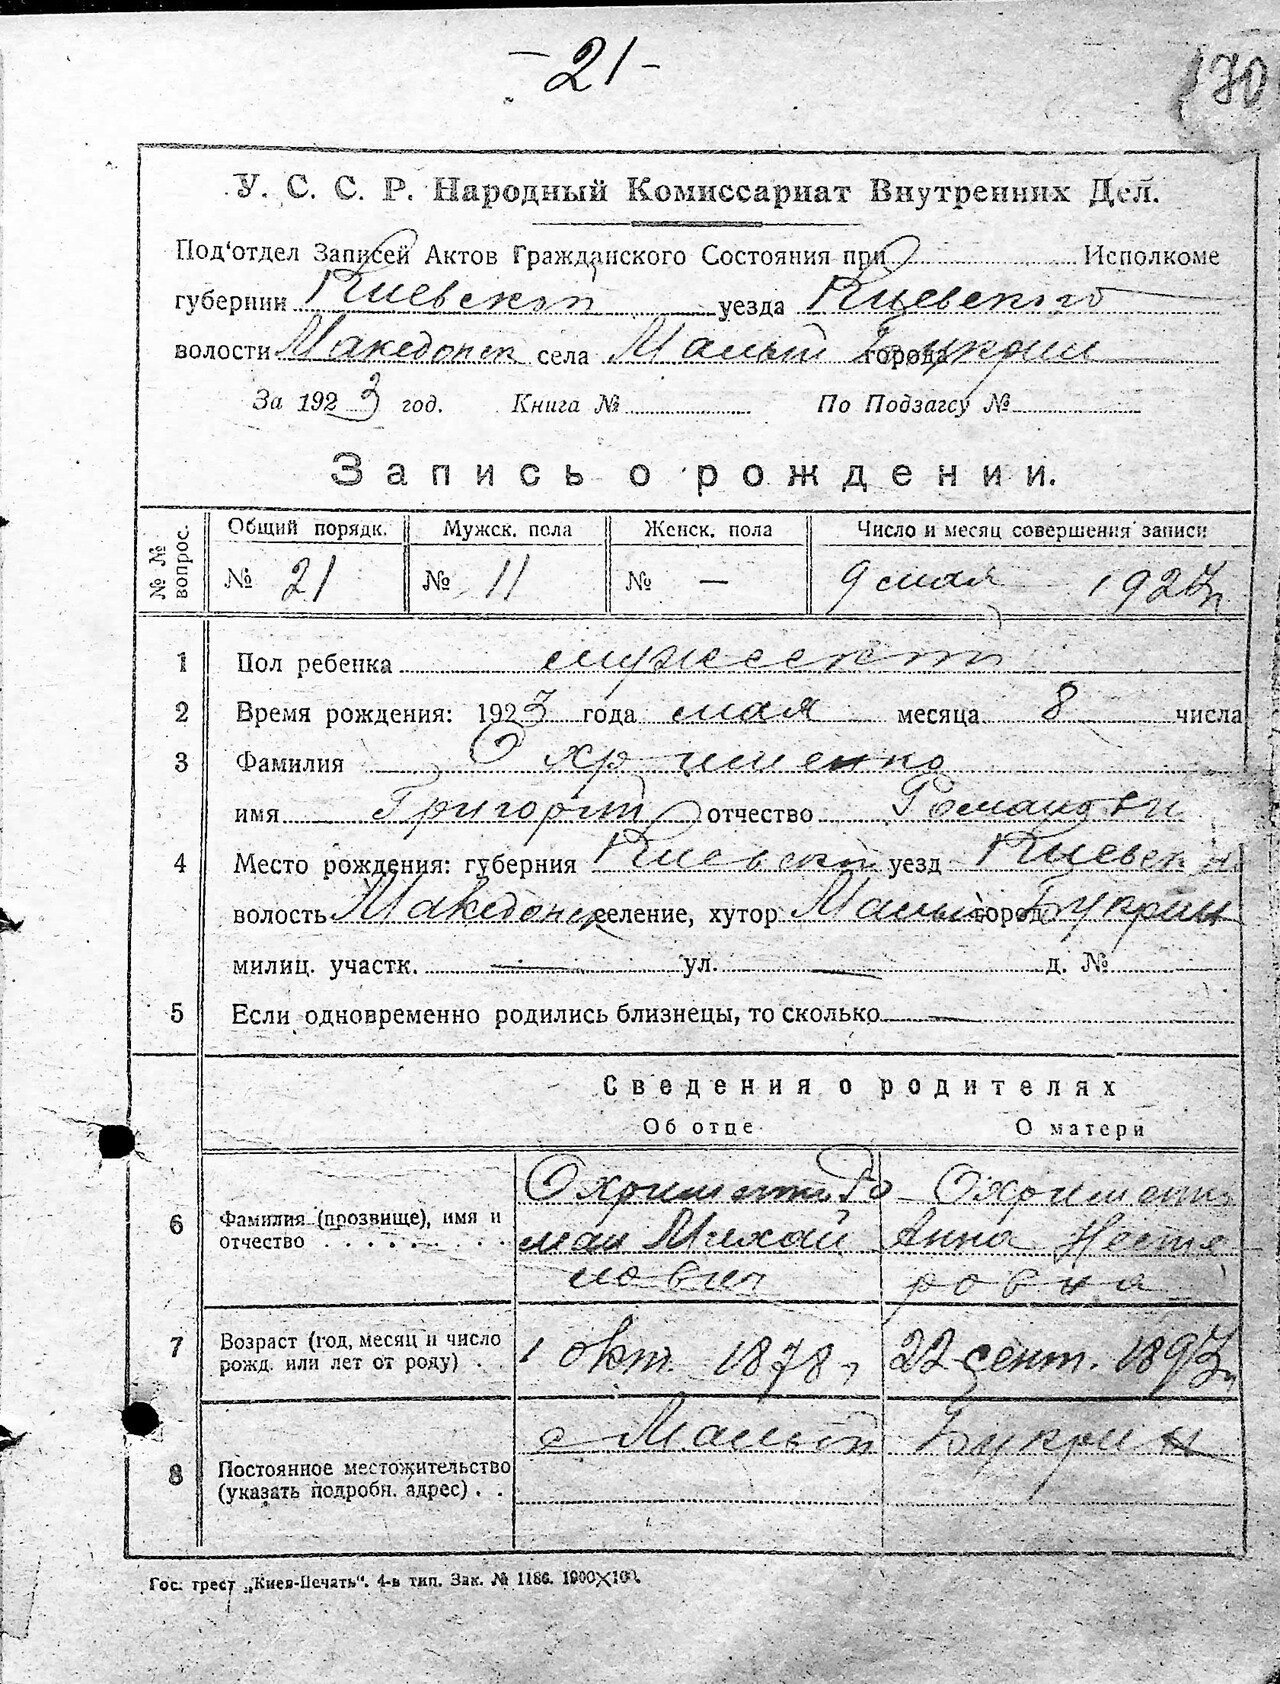 - 21 -
170
У. С. С. Р. Народный Комиссариат Внутренних Дел.
Под'отдел Записей Актов Гражданского Состояния при Исполкоме
губернии Киевской уезда Киевского
волости Македонск села Малый Букрин города
За 1923 год. Книга № По Подзагсу №
Запись о рождении.
№ № вопрос. Общий порядк. Мужск. пола Женск. пола Число и месяц совершения записи
№ 21 № 11 № — 9 мая 1923 г
1 Пол ребенка мужеский
2 Время рождения: 1923 года мая месяца 8 числа
3 Фамилия Охрименко
имя Григорий отчество Романович
4 Место рождения: губерния Киевской уезд Киевск
волость Македонск селение, хутор Малый город Букрин
милиц. участк. — ул. — д. №
5 Если одновременно родились близнецы, то сколько —
Сведения о родителях
Об отце О матери
6 Фамилия (прозвище), имя и отчество . . . . . . . .
Охрименко Ро
ман Михай
лович
Охрименко
Анна Нестe
ровна
7 Возраст (год, месяц и число рожд. или лет от роду) . .
1 окт. 1878 г 22 сент. 1893 г
8 Постоянное местожительство (указать подробн. адрес) . .
с Малый Букрин
Гос. трест „Киев-Печать“. 4-я тип. Зак. № 1186. 1900×100.